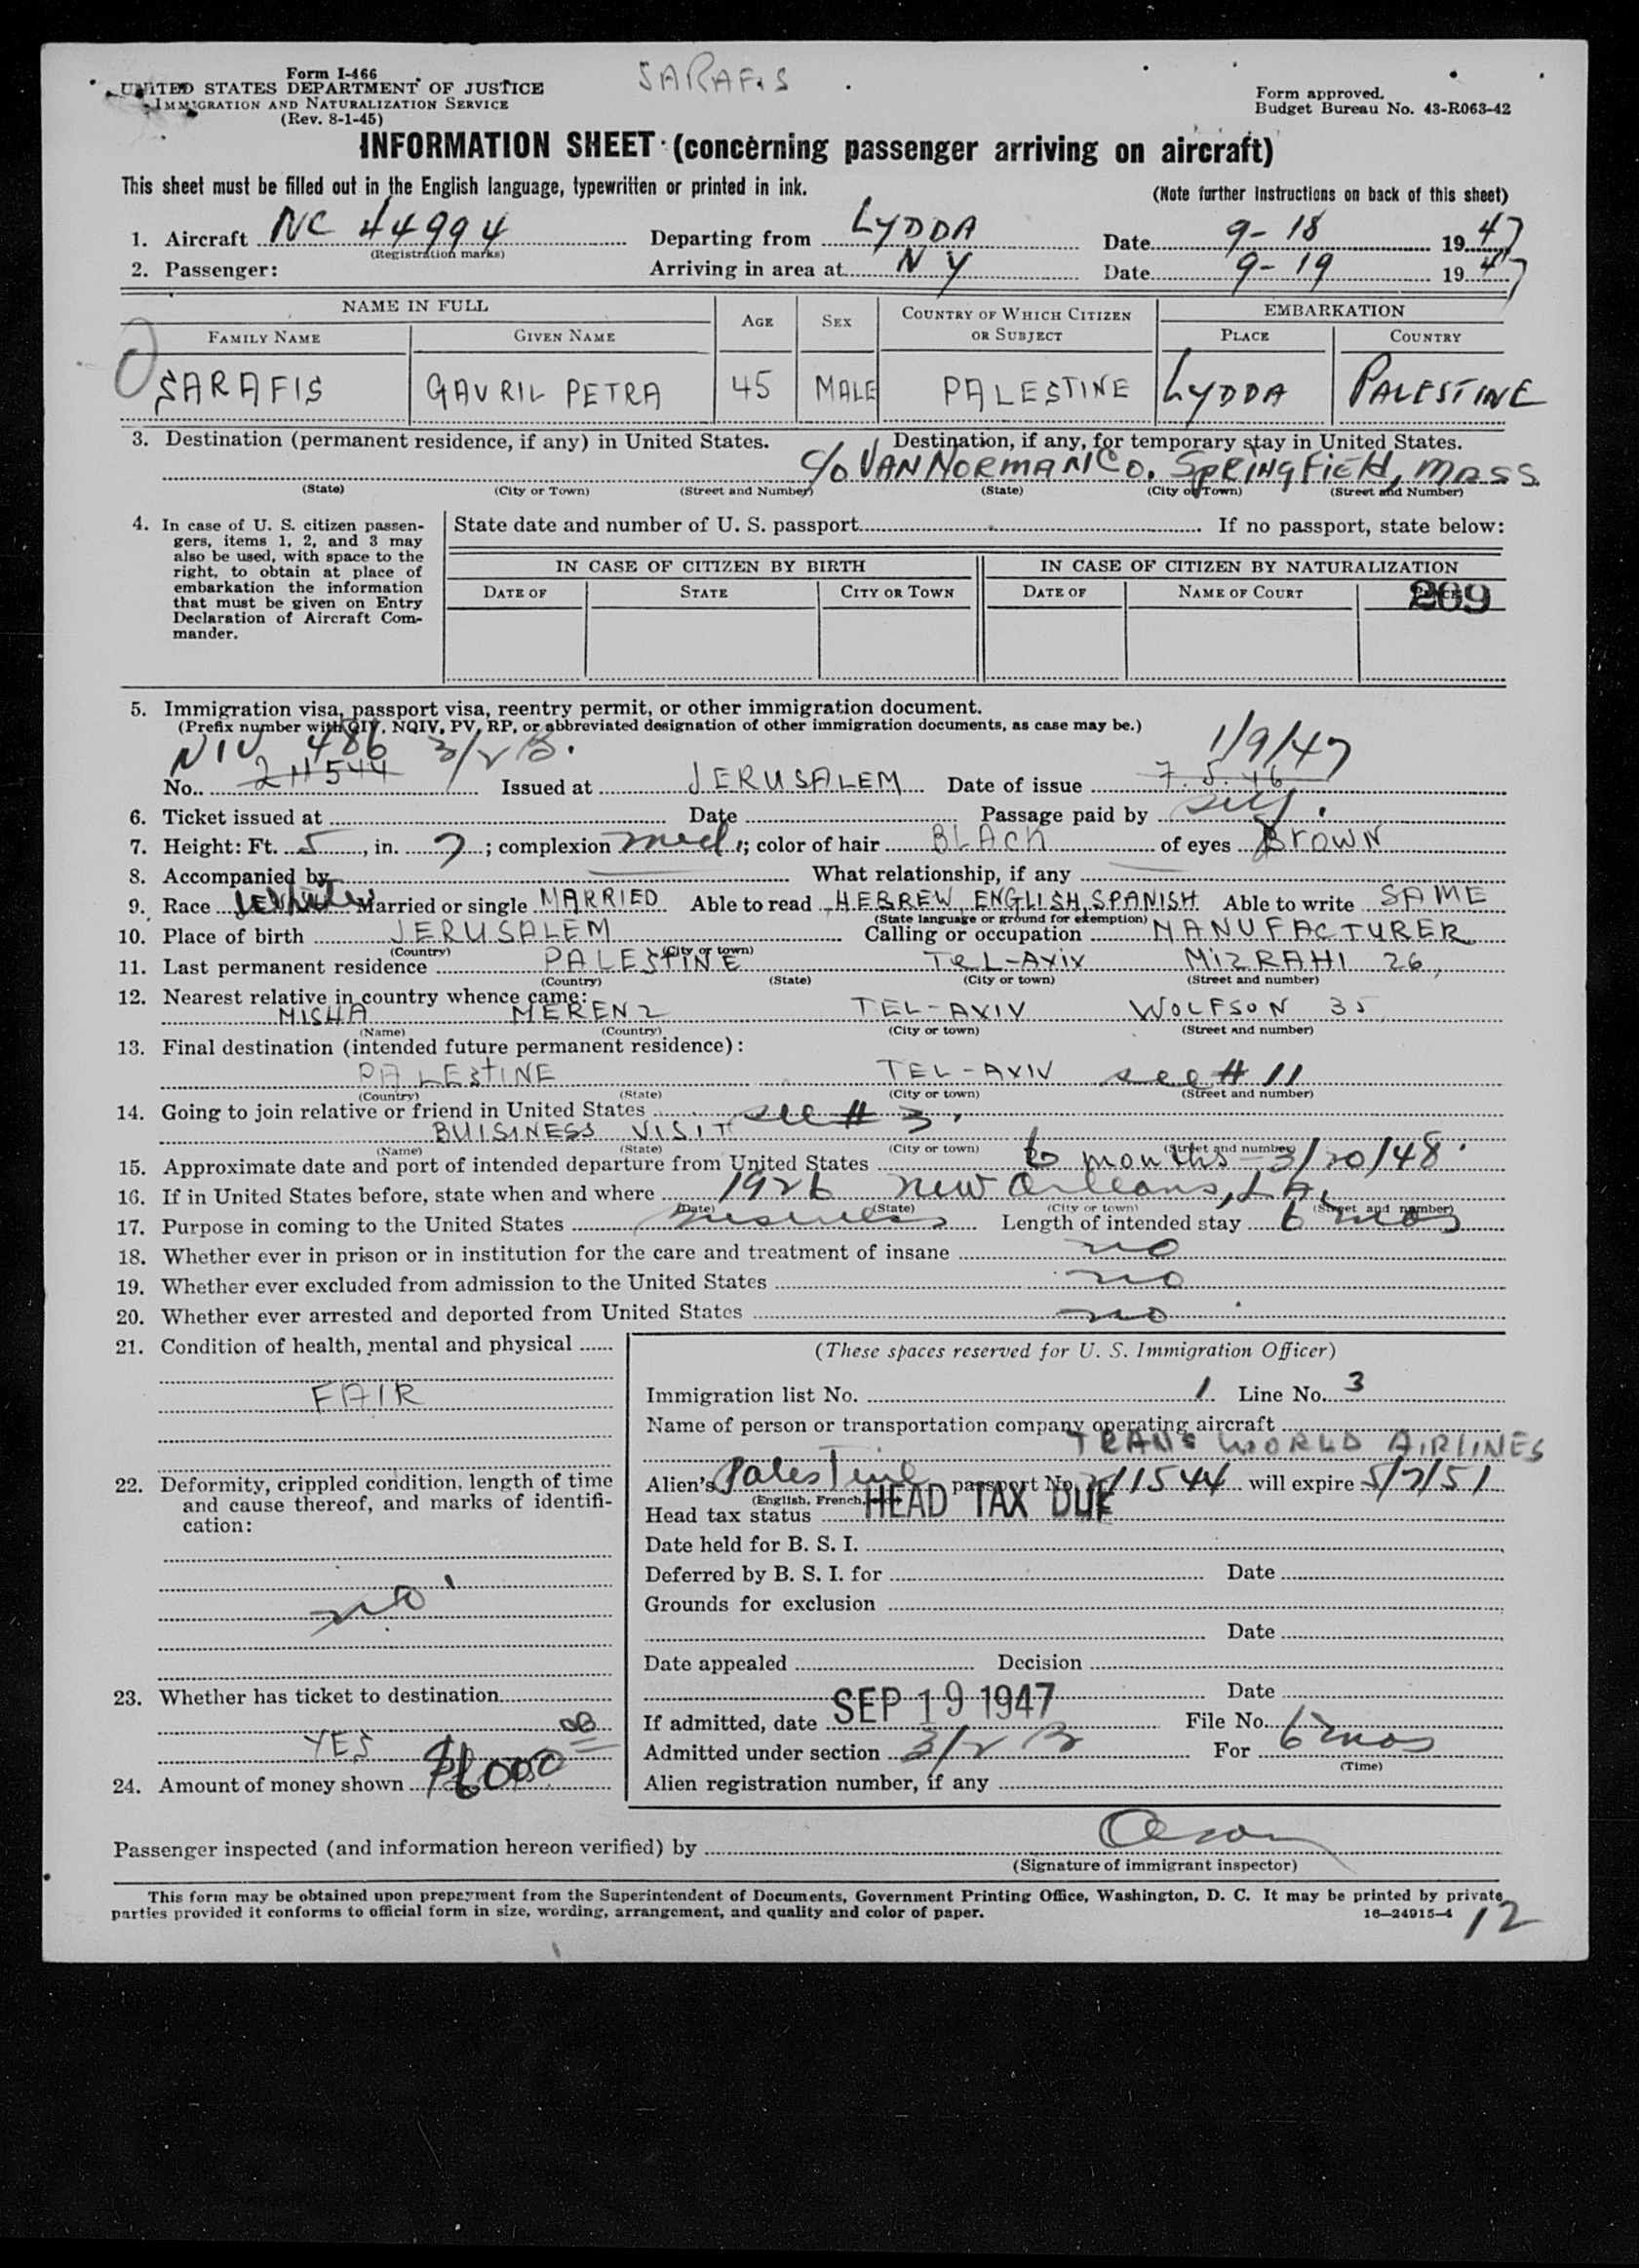 SARAFIS
Form I-466
UNITED STATES DEPARTMENT OF JUSTICE
IMMIGRATION AND NATURALIZATION SERVICE
(Rev. 8-1-45)
Form approved.
Budget Bureau No. 43-R063-42
INFORMATION SHEET (concerning passenger arriving on aircraft)
This sheet must be filled out in the English language, typewritten or printed in ink.
(Note further instructions on back of this sheet)
1. Aircraft NC 44994 Departing from LYDDA Date 9-18 1947
(Registration marks)
2. Passenger: Arriving in area at NY Date 9-19 1947
NAME IN FULL AGE SEX COUNTRY OF WHICH CITIZEN OR SUBJECT EMBARKATION
FAMILY NAME GIVEN NAME PLACE COUNTRY
SARAFIS GAVRIL PETRA 45 MALE PALESTINE LYDDA PALESTINE
3. Destination (permanent residence, if any) in United States. Destination, if any, for temporary stay in United States.
c/o VAN NORMAN CO. SPRINGFIELD, MASS
(State) (City or Town) (Street and Number) (State) (City or Town) (Street and Number)
4. In case of U. S. citizen passengers, items 1, 2, and 3 may
also be used, with space to the
right, to obtain at place of
embarkation the information
that must be given on Entry
Declaration of Aircraft Commander.
State date and number of U. S. passport If no passport, state below:
IN CASE OF CITIZEN BY BIRTH IN CASE OF CITIZEN BY NATURALIZATION
DATE OF STATE CITY OR TOWN DATE OF NAME OF COURT
269
5. Immigration visa, passport visa, reentry permit, or other immigration document.
(Prefix number with QIV, NQIV, PV, RP, or abbreviated designation of other immigration documents, as case may be.)
NIV 486 3/2 B. 1/9/47
No. 211544 Issued at JERUSALEM Date of issue 7.5.46
6. Ticket issued at Date Passage paid by self.
7. Height: Ft. 5, in. 7; complexion med.; color of hair BLACK of eyes BROWN
8. Accompanied by What relationship, if any
9. Race White Married or single MARRIED Able to read HEBREW, ENGLISH, SPANISH Able to write SAME
(State language or ground for exemption)
10. Place of birth JERUSALEM Calling or occupation MANUFACTURER
(Country) (City or town)
11. Last permanent residence PALESTINE TEL-AVIV MIZRAHI 26,
(Country) (State) (City or town) (Street and number)
12. Nearest relative in country whence came:
MISHA MERENZ TEL-AVIV WOLFSON 35
(Name) (Country) (City or town) (Street and number)
13. Final destination (intended future permanent residence):
PALESTINE TEL-AVIV see # 11
(Country) (State) (City or town) (Street and number)
14. Going to join relative or friend in United States see # 3.
BUISINESS VISIT
(Name) (State) (City or town) (Street and number)
15. Approximate date and port of intended departure from United States 6 months - 3/20/48.
16. If in United States before, state when and where 1926 New Orleans, LA.
(Date) (State) (City or town) (Street and number)
17. Purpose in coming to the United States business Length of intended stay 6 mos
18. Whether ever in prison or in institution for the care and treatment of insane no
19. Whether ever excluded from admission to the United States no
20. Whether ever arrested and deported from United States no
21. Condition of health, mental and physical
FAIR
22. Deformity, crippled condition, length of time
and cause thereof, and marks of identification:
no
23. Whether has ticket to destination
YES
24. Amount of money shown $6000 00
(These spaces reserved for U. S. Immigration Officer)
Immigration list No. 1 Line No. 3
Name of person or transportation company operating aircraft
TRANS WORLD AIRLINES
Alien's Palestine passport No. 211544 will expire 5/7/51
(English, French,
Head tax status HEAD TAX DUE
Date held for B. S. I.
Deferred by B. S. I. for Date
Grounds for exclusion
Date
Date appealed Decision
Date
If admitted, date SEP 19 1947 File No.
Admitted under section 3/2 B For 6 mos
(Time)
Alien registration number, if any
Passenger inspected (and information hereon verified) by
(Signature of immigrant inspector)
This form may be obtained upon prepayment from the Superintendent of Documents, Government Printing Office, Washington, D. C. It may be printed by private
parties provided it conforms to official form in size, wording, arrangement, and quality and color of paper.
16—24915-4
12